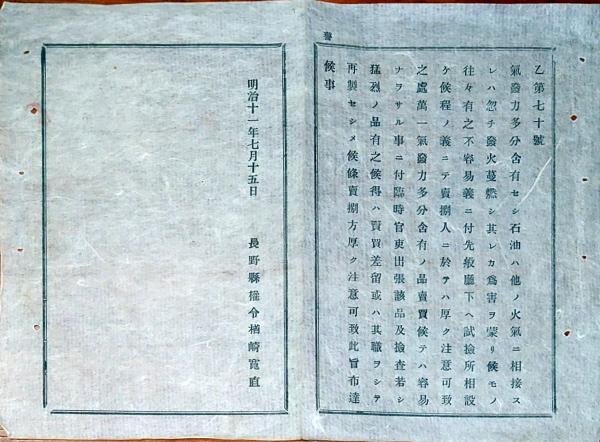 警
乙第七十號
氣發力多分含有セシ石油ハ他ノ火氣ニ相接ス
レハ忽チ發火蔓燃シ其レカ爲害ヲ蒙リ候モノ
往々有之不容易義ニ付先般廳下ヘ試撿所相設
ケ候程ノ義ニテ賣捌人ニ於テハ厚ク注意可致
之處萬一氣發力多分含有ノ品賣買候テハ容易
ナラサル事ニ付臨時官吏出張該品及撿査若シ
猛烈ノ品有之候得ハ賣買差留或ハ其職ヲシテ
再製セシメ候條賣捌方厚ク注意可致此旨布達
候事
明治十一年七月十五日
長野縣權令楢崎寛直